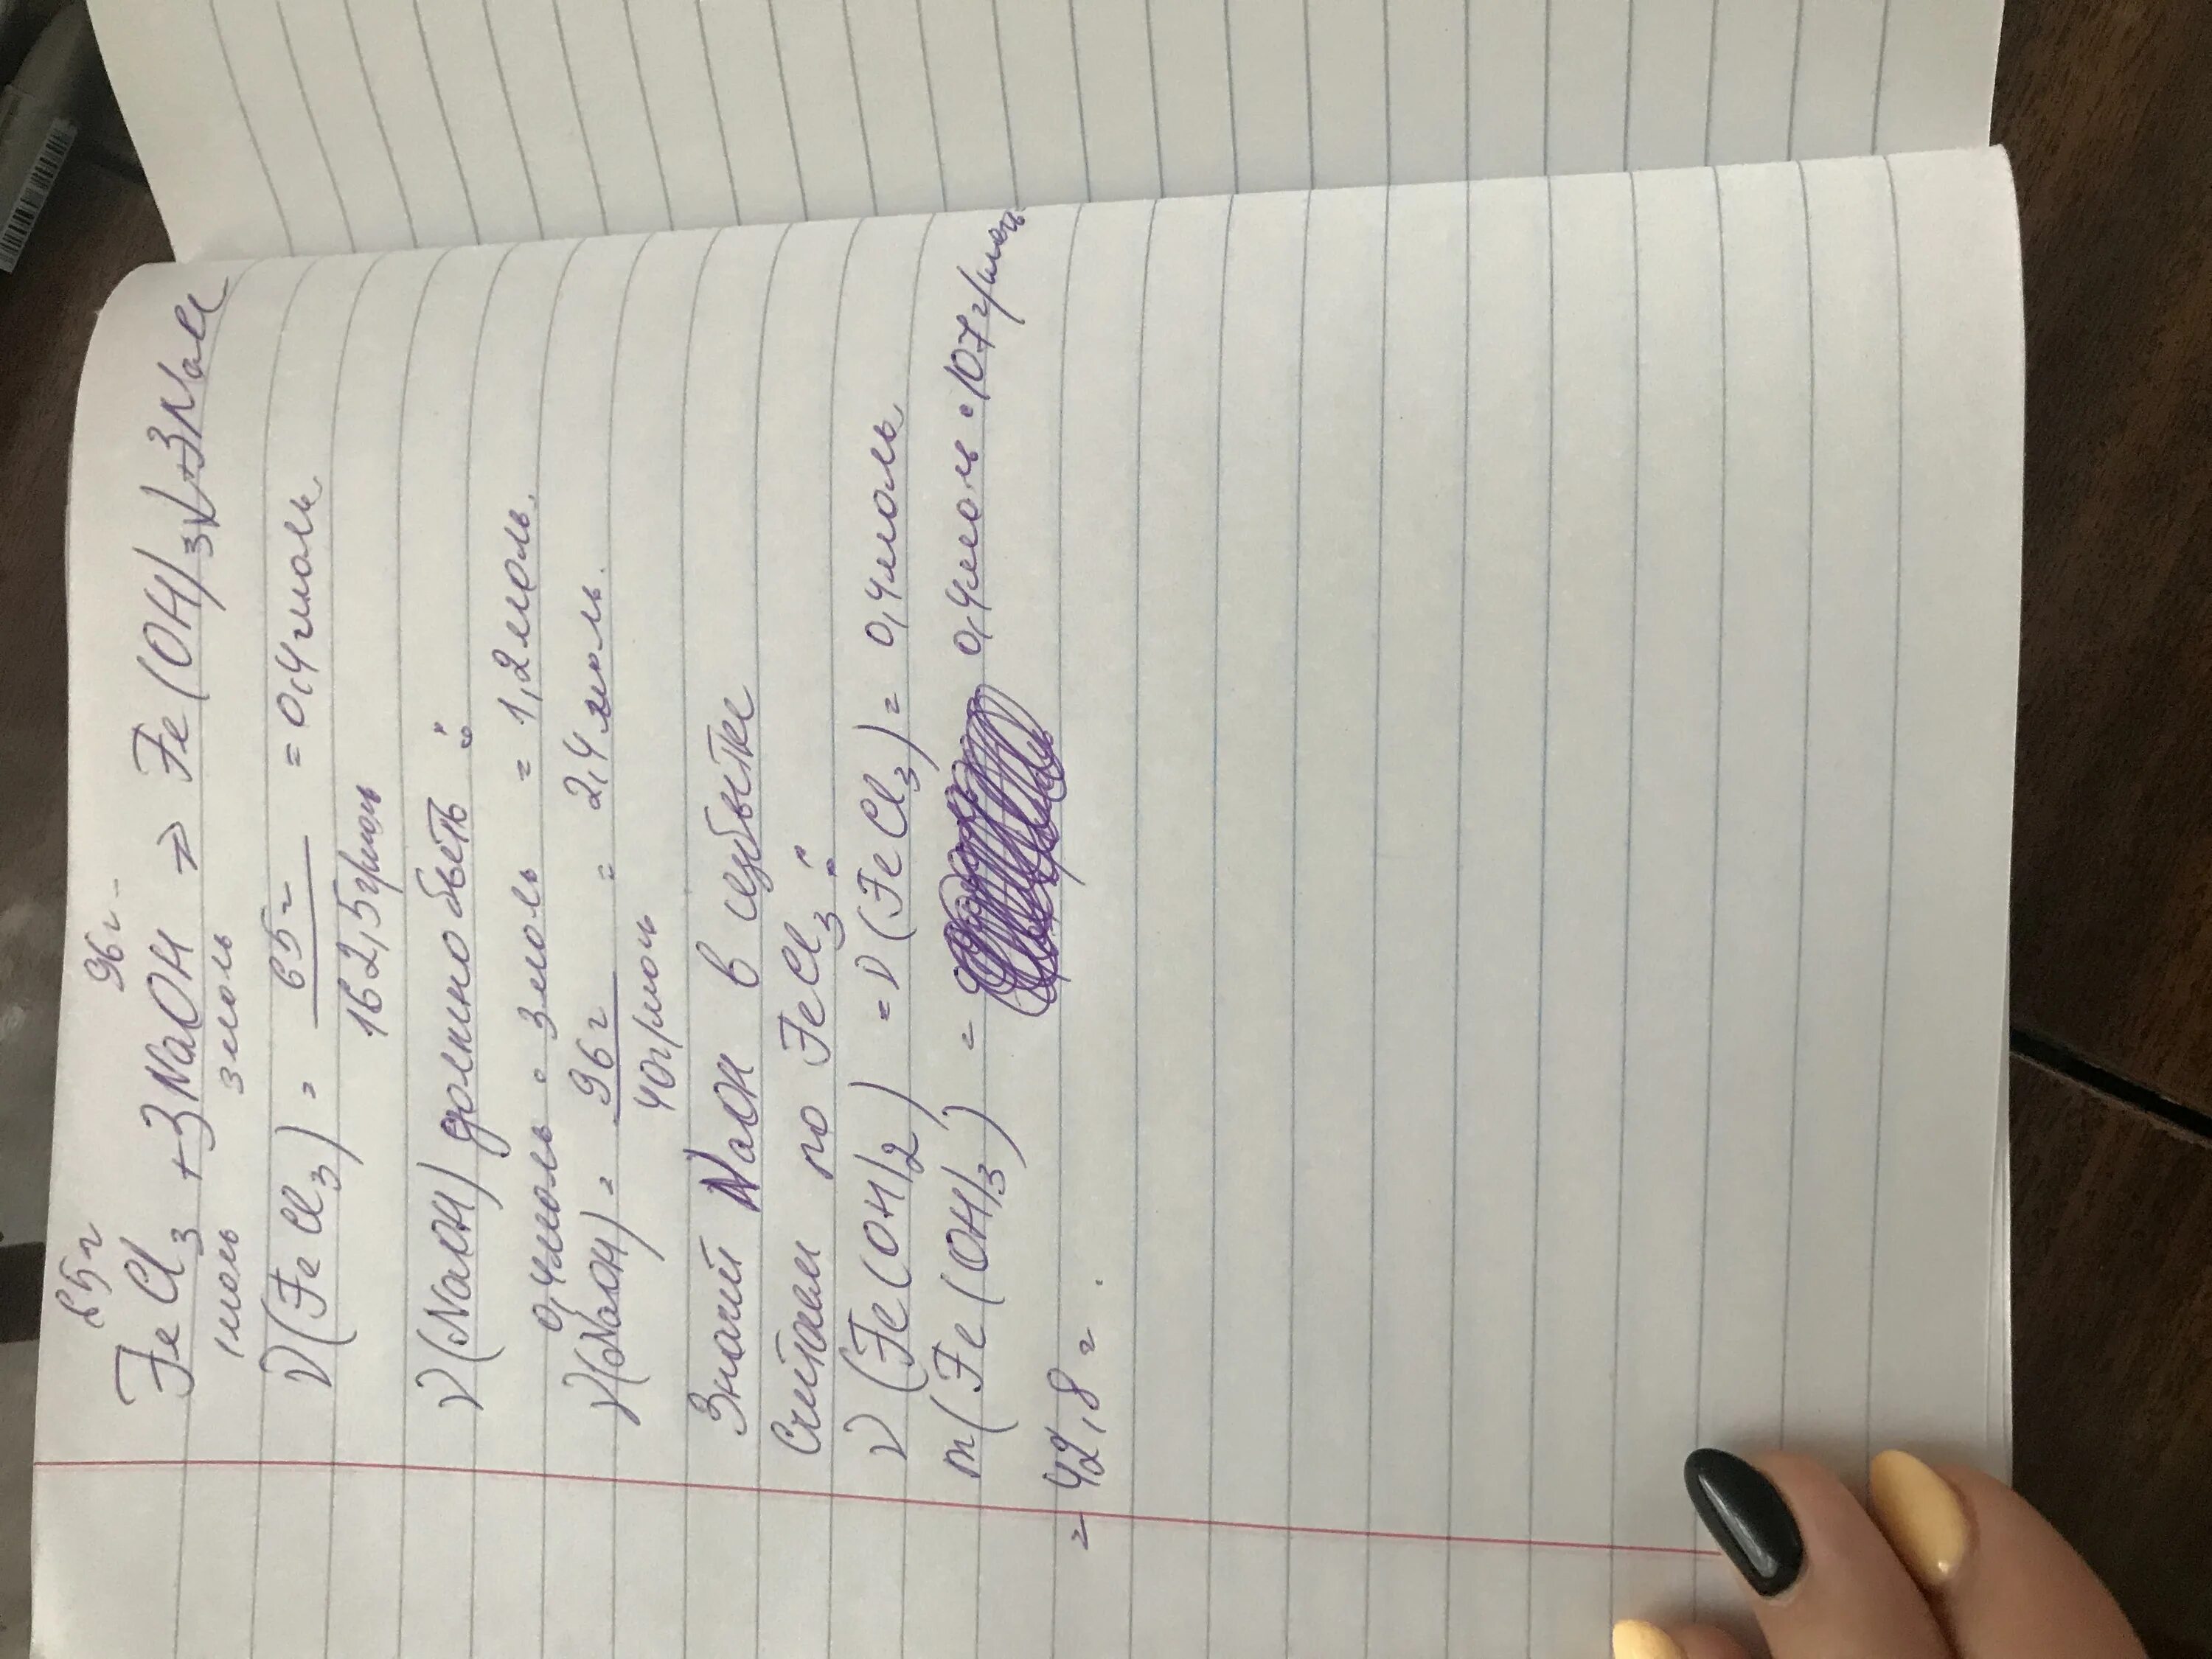 65г 96г
FeCl3 + 3NaOH → Fe(OH)3↓+3NaCl
1моль 3моль
ν(FeCl3) = 65г / 162,5г/моль = 0,4моль
ν(NaOH) должно быть:
0,4моль · 3моль = 1,2моль.
ν(NaOH) = 96г / 40г/моль = 2,4моль.
Значит NaOH в избытке
Считаем по FeCl3:
ν(Fe(OH)2) = ν(FeCl3) = 0,4моль
m(Fe(OH)3) = 0,4моль · 107г/моль
= 42,8г.